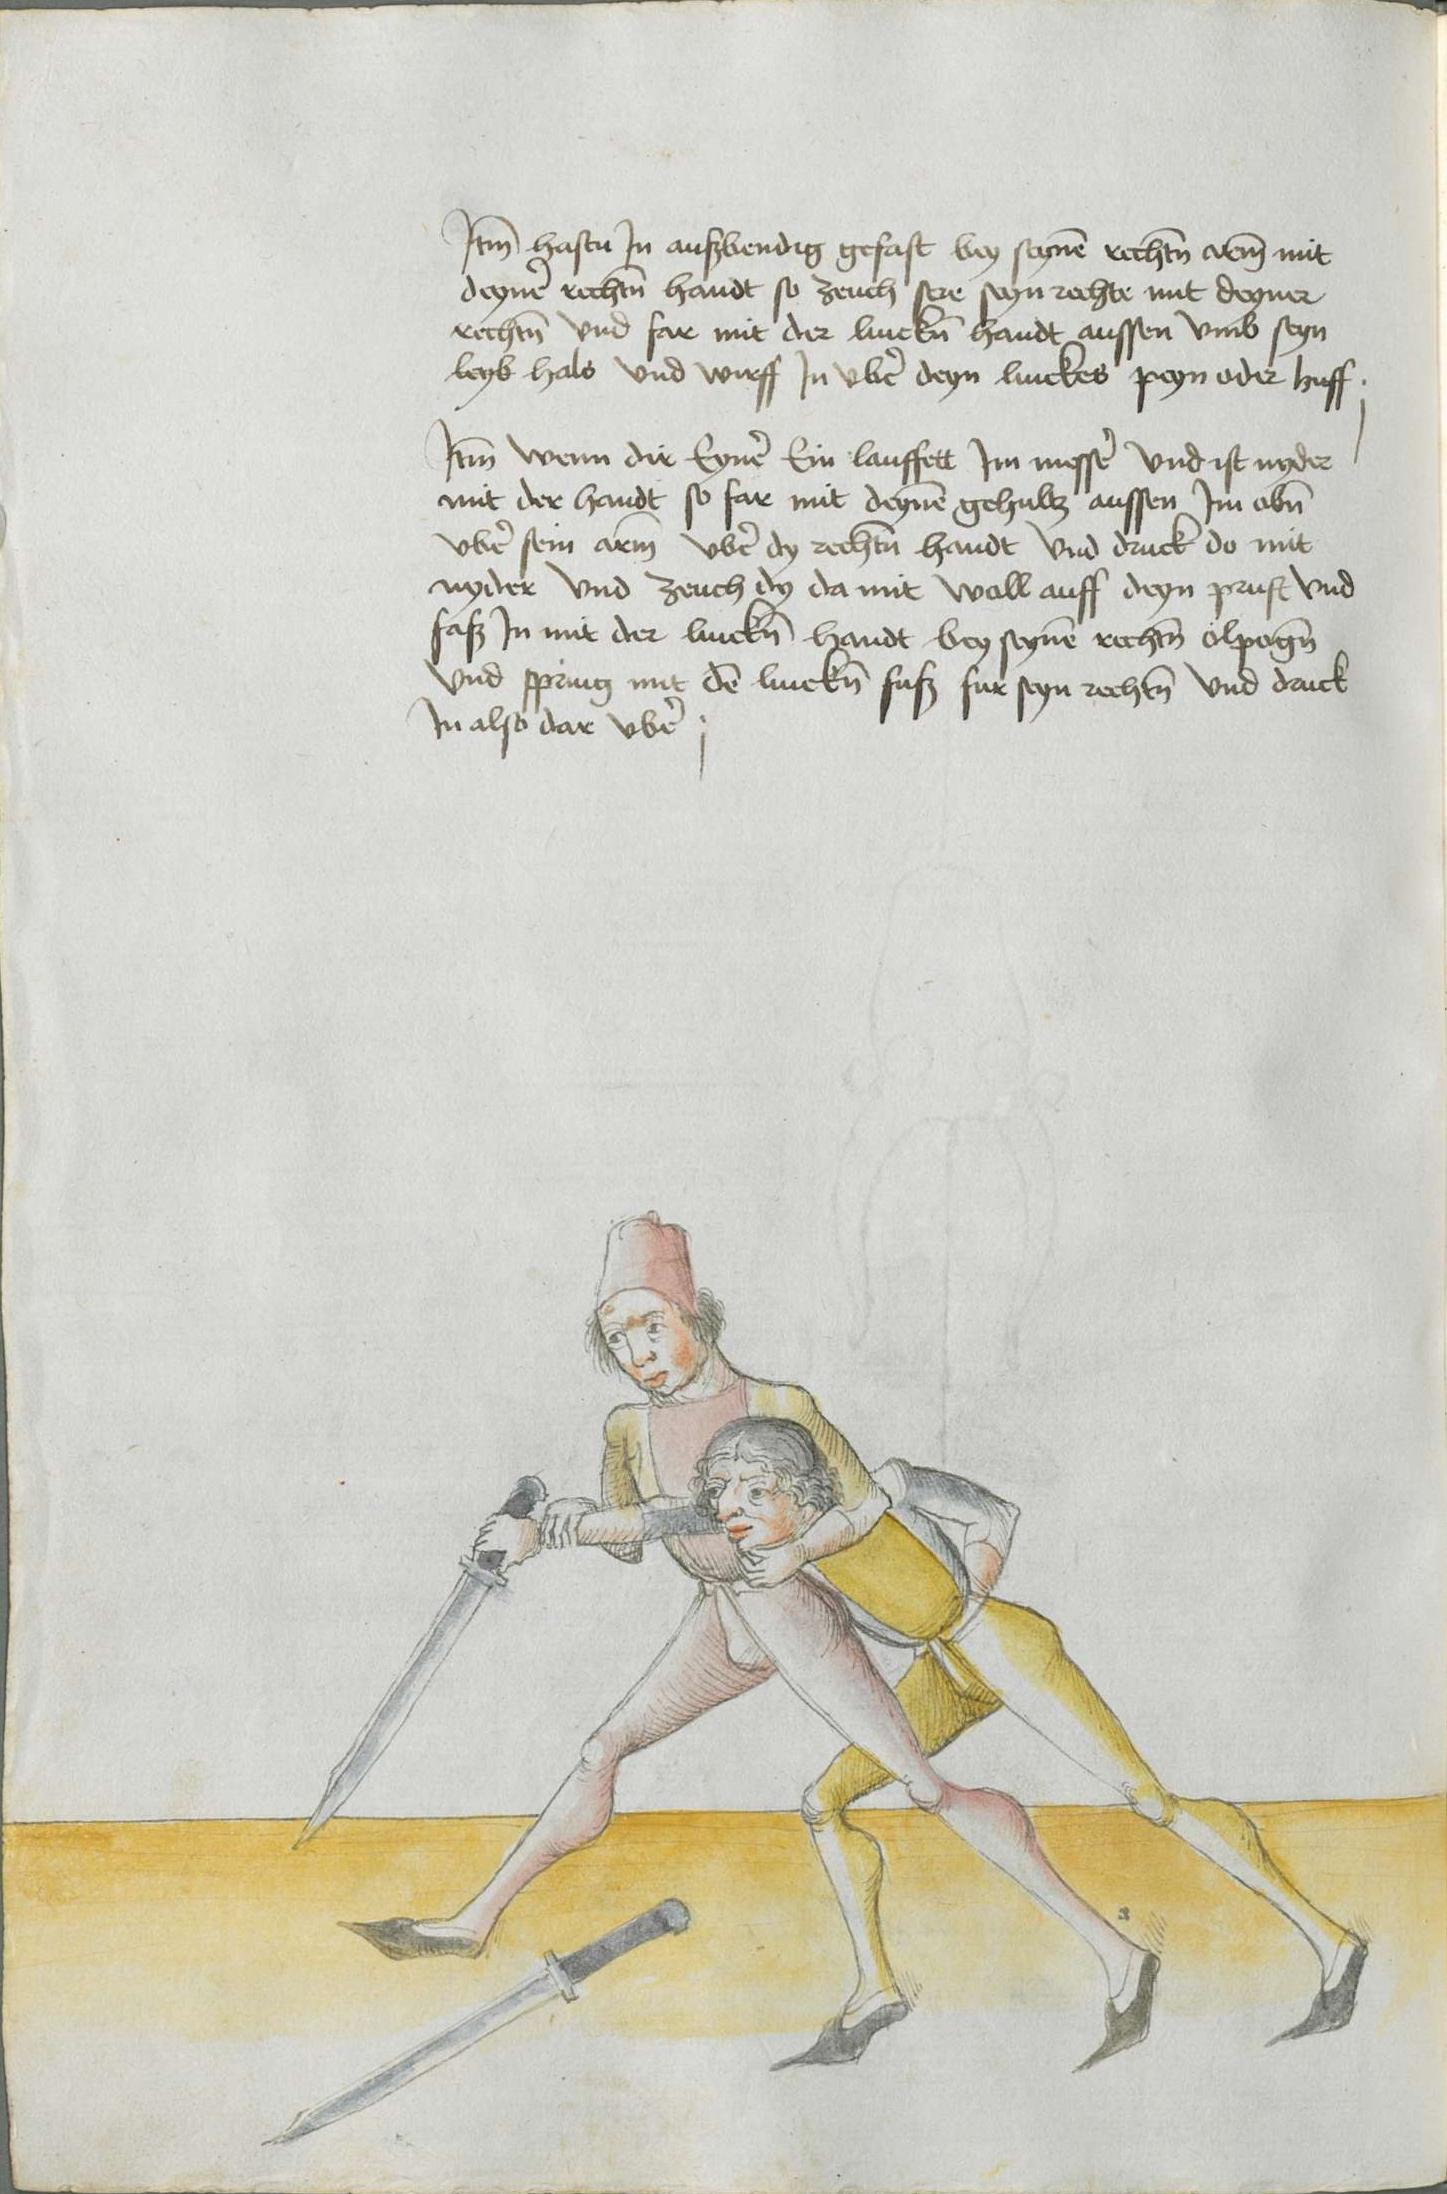 Itm̄ hastu In außbendig gefast bey seynē rechtn̄ arm̄ mit
deynē rechtn̄ handt so zeuch sere seyn rechte mit deyner
rechtn̄ vnd far mit der linckn̄ handt aussen vmb seyn
leyb hals vnd wirff In vbē deyn linckes peyn oder huff
Itm̄ wenn dir Eynē Ein lauffett Im messē vnd ist nyder
mit der handt so far mit deynē gehultz aussen Im obn̄
vbē sein arm̄ vbē dy rechtn̄ handt vnd druck do mit
nyder vnd zeuch dy da mit woll auff deyn prust vnd
faß In mit der linckn̄ handt bey seynē rechtn̄ olpogn̄
vnd spring mit dē linckn̄ fuß fur seyn rechtn̄ vnd druck
In also dar vbē